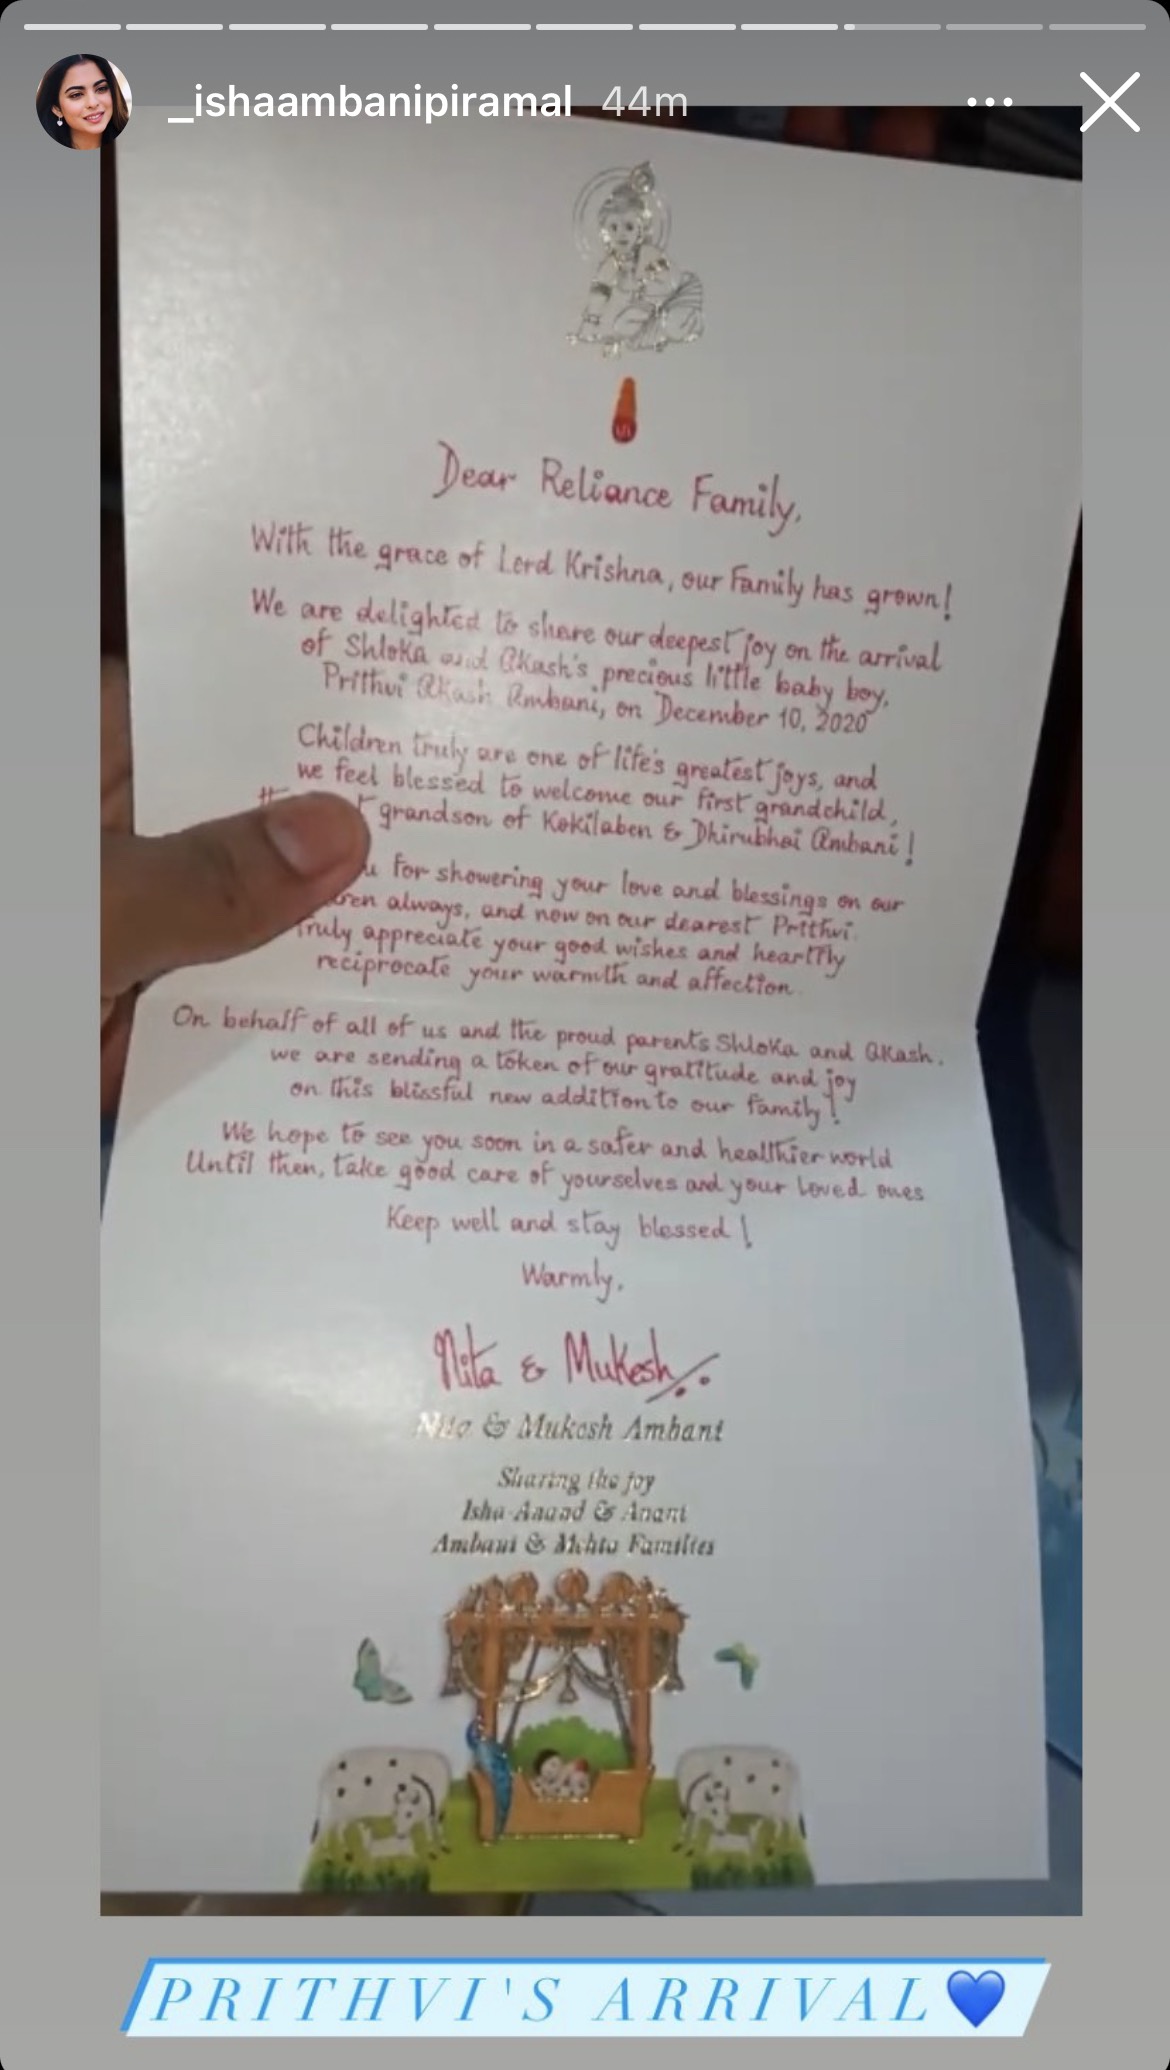 _ishaambanipiramal 44m
Dear Reliance Family,
With the grace of Lord Krishna, our Family has grown!
We are delighted to share our deepest joy on the arrival
of Shloka and Akash's precious little baby boy,
Prithvi Akash Ambani, on December 10, 2020
Children truly are one of life's greatest joys, and
we feel blessed to welcome our first grandchild,
grandson of Kokilaben & Dhirubhai Ambani!
for showering your love and blessings on our
always, and now on our dearest Prithvi.
Truly appreciate your good wishes and heartfly
reciprocate your warmth and affection.
On behalf of all of us and the proud parents Shloka and Akash.
we are sending a token of our gratitude and joy
on this blissful new addition to our family!
We hope to see you soon in a safer and healthier world
Until then, take good care of yourselves and your loved ones
Keep well and stay blessed!
Warmly,
Nita & Mukesh
Nita & Mukesh Ambani
Sharing the joy
Isha-Anand & Anant
Ambani & Mehta Families
PRITHVI'S ARRIVAL💙